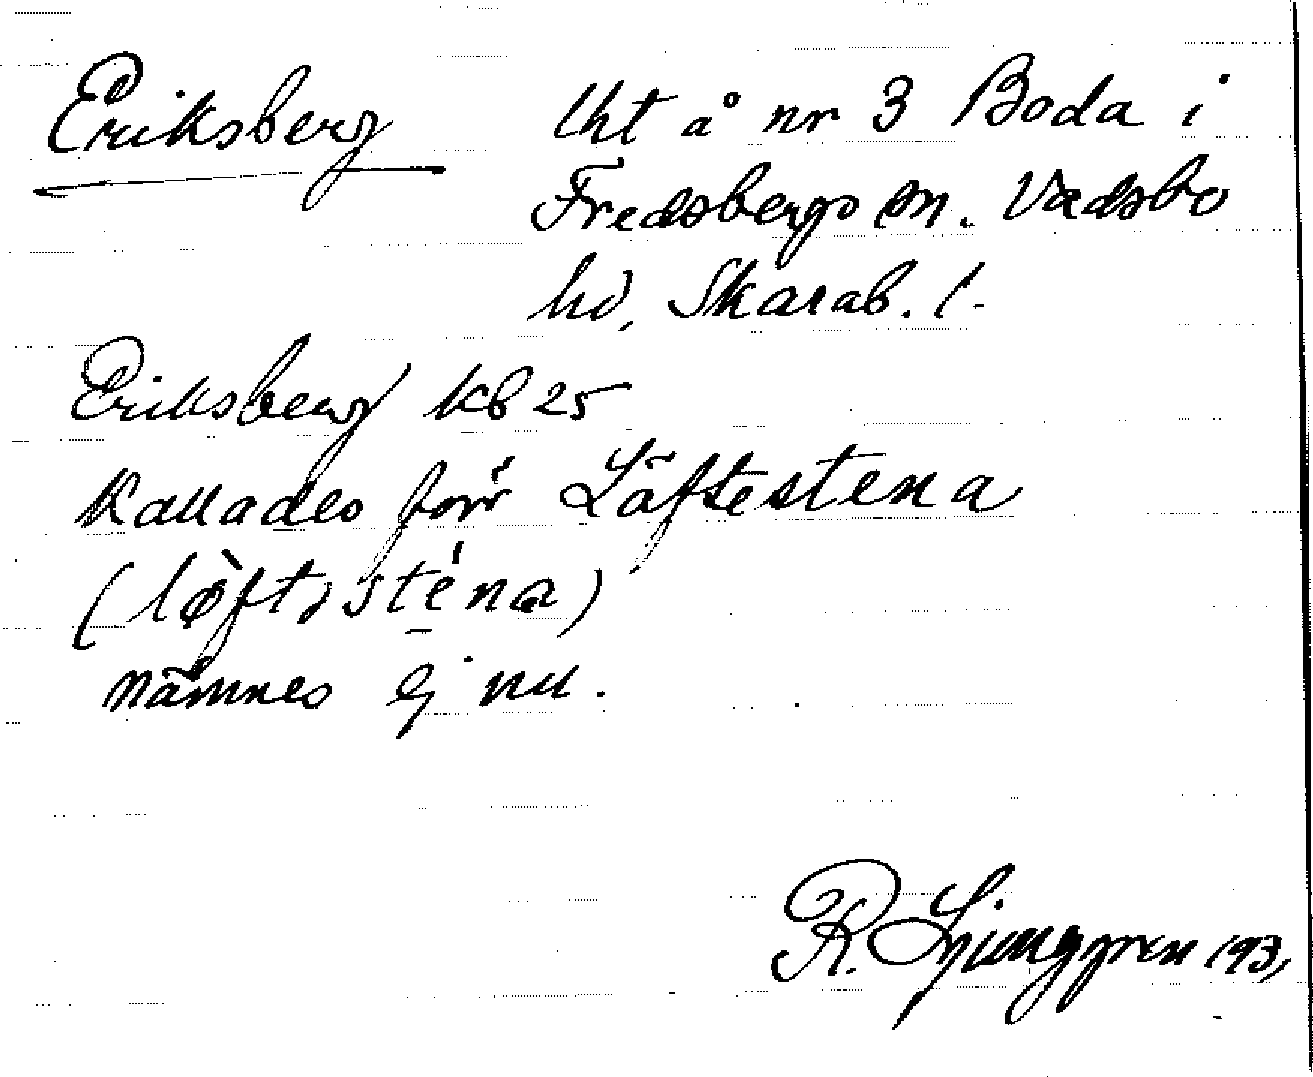 Eriksberg lht å nr 3 Boda i
Fredsbergs sn. Vadsbo
hd, Skarab. l.
Eriksberg kb 25
Kallades förr Löftestena
(lòftəsténa)
nämnes ej nu.
R. Ljunggren 193